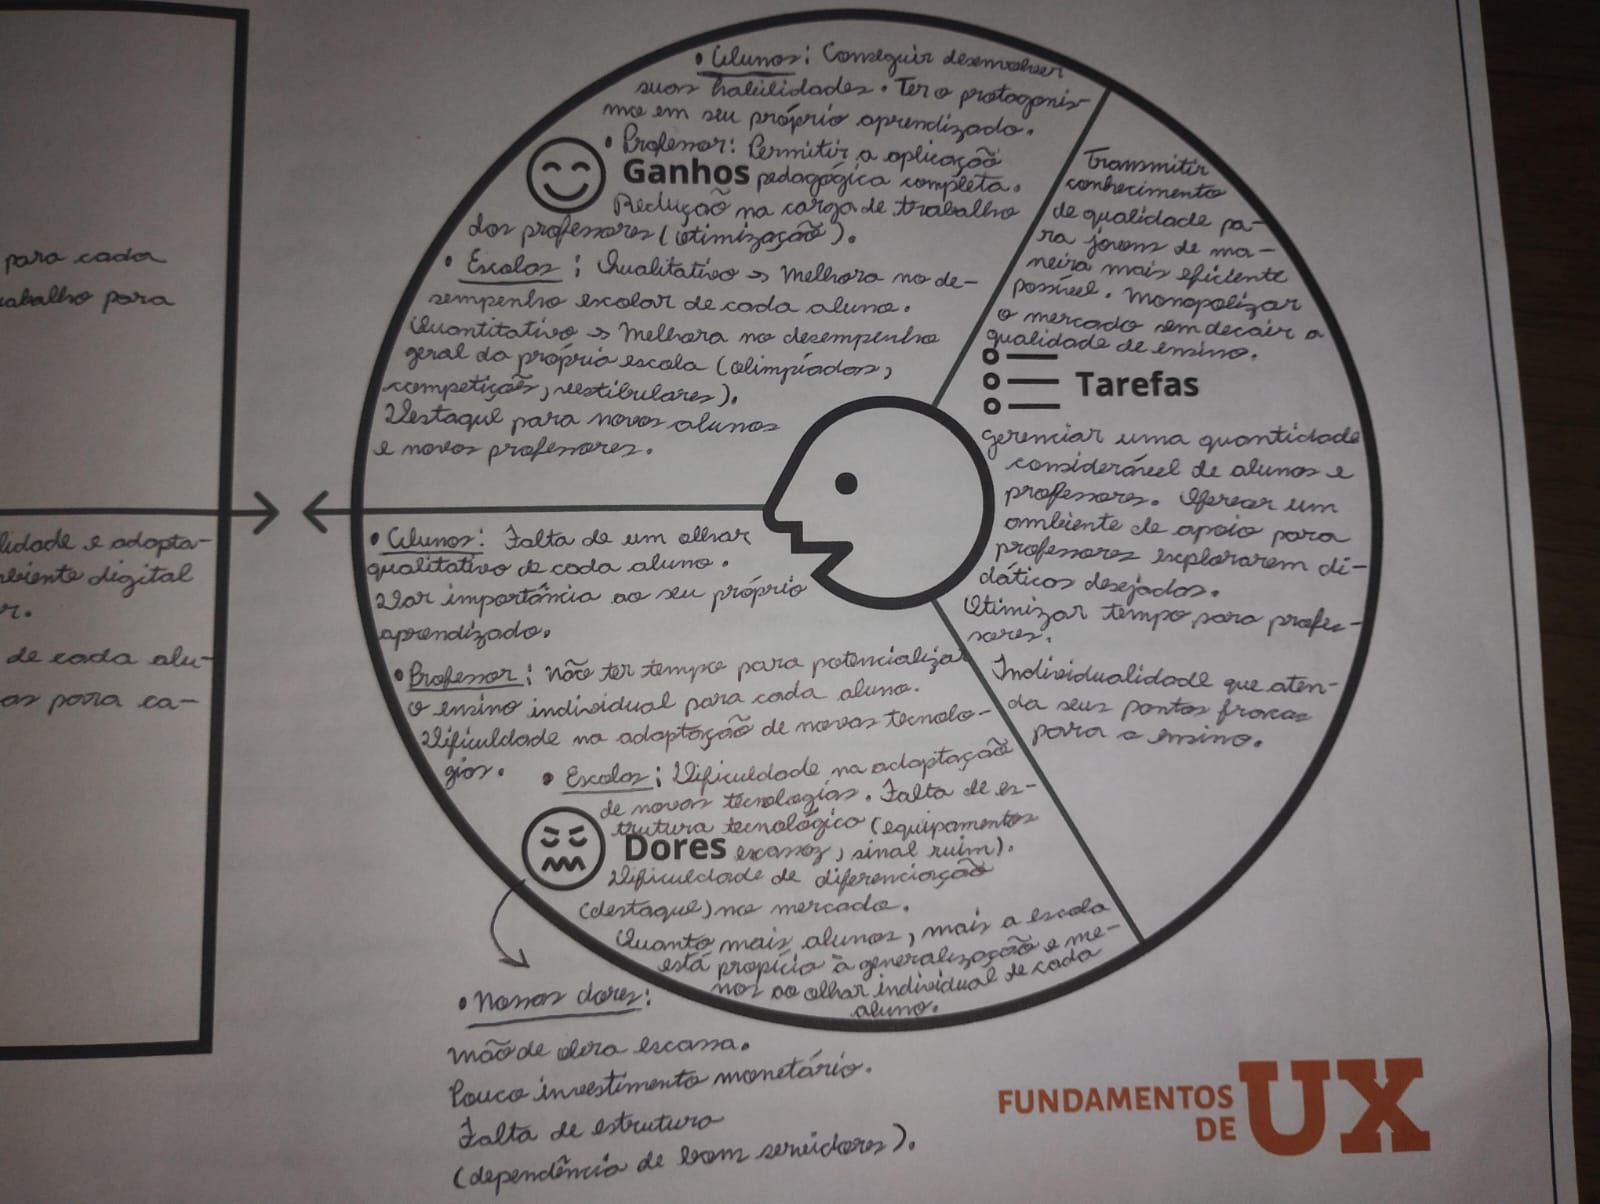 • Alunos: Conseguir desenvolver
suas habilidades. Ter o protagonis-
mo em seu próprio aprendizado.
• Professor: Permitir a aplicação
Ganhos pedagógica completa.
Redução na carga de trabalho
dos professores (otimização).
• Escolas: Qualitativo → Melhora no de-
sempenho escolar de cada aluno.
Quantitativo → Melhora no desempenho
geral da própria escola (olimpíadas,
competições, vestibulares).
Destaque para novos alunos
e novos professores.
Transmitir
conhecimento
de qualidade pa-
ra jovens de ma-
neira mais eficiente
possível. Monopolizar
o mercado sem decair a
qualidade de ensino.
Tarefas
gerenciar uma quantidade
considerável de alunos e
professores. Oferecer um
ambiente de apoio para
professores explorarem di-
dáticas desejadas.
Otimizar tempo para profes-
sores.
Individualidade que aten-
da seus pontos fracos
para o ensino.
• Alunos: Falta de um olhar
qualitativo de cada aluno.
Dar importância ao seu próprio
aprendizado.
• Professor: Não ter tempo para potencializar
o ensino individual para cada aluno.
Dificuldade na adaptação de novas tecnolo-
gias.
• Escolas: Dificuldade na adaptação
de novas tecnologias. Falta de es-
trutura tecnológica (equipamentos
Dores escassoz, sinal ruim).
Dificuldade de diferenciação
(destaque) no mercado.
Quanto mais alunos, mais a escola
está propícia à generalização e me-
nos ao olhar individual de cada
aluno.
• Nossas dores:
mão de obra escassa.
Pouco investimento monetário.
Falta de estrutura
(dependência de bom servidores).
para cada
trabalho para
lidade e adapta-
biente digital
r.
de cada alu-
as para ca-
FUNDAMENTOS
DE UX